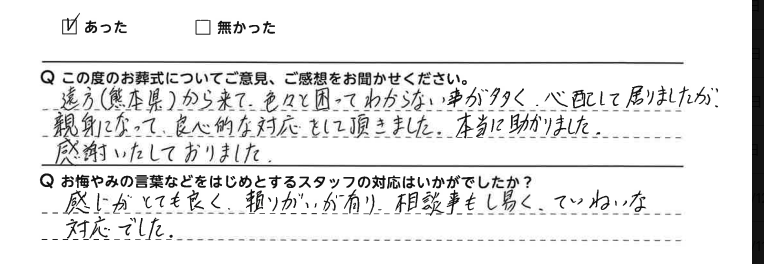 ☑ あった □ 無かった
Q この度のお葬式についてご意見、ご感想をお聞かせください。
遠方(熊本県)から来て、色々と困ってわからない事が多く、心配して居りましたが、
親身になって、良心的な対応をして頂きました。本当に助かりました。
感謝いたしております。
Q お悔やみの言葉などをはじめとするスタッフの対応はいかがでしたか？
感じがとても良く、頼りがいが有り、相談事もし易く、ていねいな
対応でした。